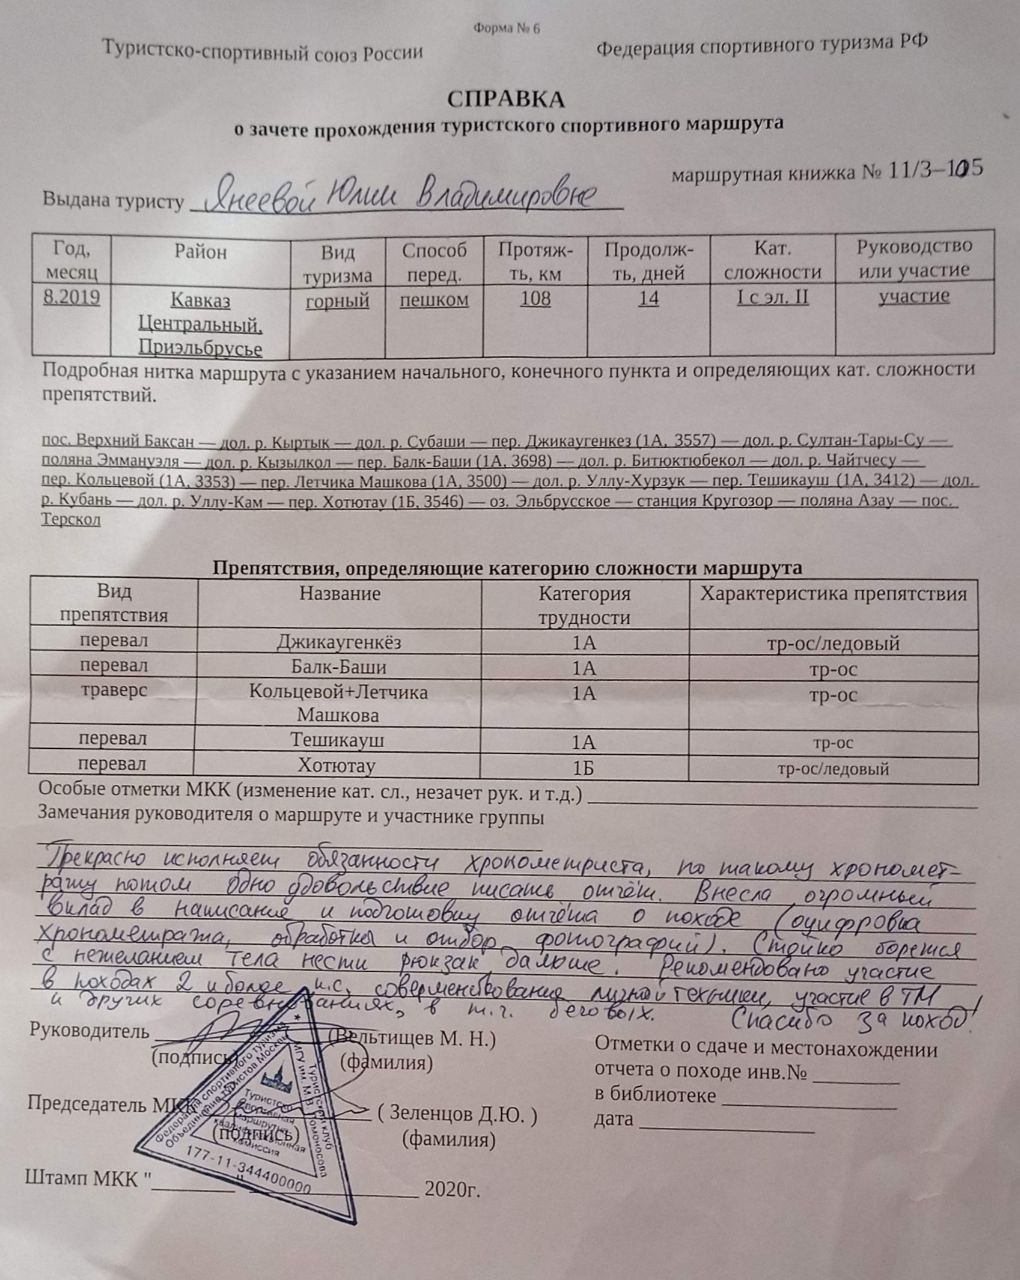 Форма № 6
Туристско-спортивный союз России Федерация спортивного туризма РФ
СПРАВКА
о зачете прохождения туристского спортивного маршрута
маршрутная книжка № 11/3–105
Выдана туристу Янеевой Юлии Владимировне
Год, месяц Район Вид туризма Способ перед. Протяж-ть, км Продолж-ть, дней Кат. сложности Руководство или участие
8.2019 Кавказ Центральный, Приэльбрусье горный пешком 108 14 I с эл. II участие
Подробная нитка маршрута с указанием начального, конечного пункта и определяющих кат. сложности
препятствий.
пос. Верхний Баксан — дол. р. Кыртык — дол. р. Субаши — пер. Джикаугенкез (1А, 3557) — дол. р. Султан-Тары-Су —
поляна Эммануэля — дол. р. Кызылкол — пер. Балк-Баши (1А, 3698) — дол. р. Битюктюбекол — дол. р. Чайтчесу —
пер. Кольцевой (1А, 3353) — пер. Летчика Машкова (1А, 3500) — дол. р. Уллу-Хурзук — пер. Тешикауш (1А, 3412) — дол.
р. Кубань — дол. р. Уллу-Кам — пер. Хотютау (1Б, 3546) — оз. Эльбрусское — станция Кругозор — поляна Азау — пос.
Терскол
Препятствия, определяющие категорию сложности маршрута
Вид препятствия Название Категория трудности Характеристика препятствия
перевал Джикаугенкёз 1А тр-ос/ледовый
перевал Балк-Баши 1А тр-ос
траверс Кольцевой+Летчика Машкова 1А тр-ос
перевал Тешикауш 1А тр-ос
перевал Хотютау 1Б тр-ос/ледовый
Особые отметки МКК (изменение кат. сл., незачет рук. и т.д.)
Замечания руководителя о маршруте и участнике группы
Прекрасно исполняет обязанности хронометриста, по такому хрономет=
ражу потом одно удовольствие писать отчёт. Внесла огромный
вклад в написание и подготовку отчёта о походе (оцифровка
хронометража, обработка и отбор фотографий). Стойко борется
с нежеланием тела нести рюкзак дальше. Рекомендовано участие
в походах 2 и более к.с, совершенствование лыжной техники, участие в ТМ
и других соревнованиях, в т.ч. беговых. Спасибо за поход!
Руководитель (Вельтищев М. Н.)
(подпись) (фамилия)
Отметки о сдаче и местонахождении
отчета о походе инв.№
в библиотеке
дата
Председатель МКК ( Зеленцов Д.Ю. )
(подпись) (фамилия)
Штамп МКК " " 2020г.
Федерация спортивного туризма
Объединение туристов Москвы
Туристский клуб
МГУ им. М.В. Ломоносова
Туристско-
спортивная
маршрутно-
квалификационная
комиссия
177-11-344400000